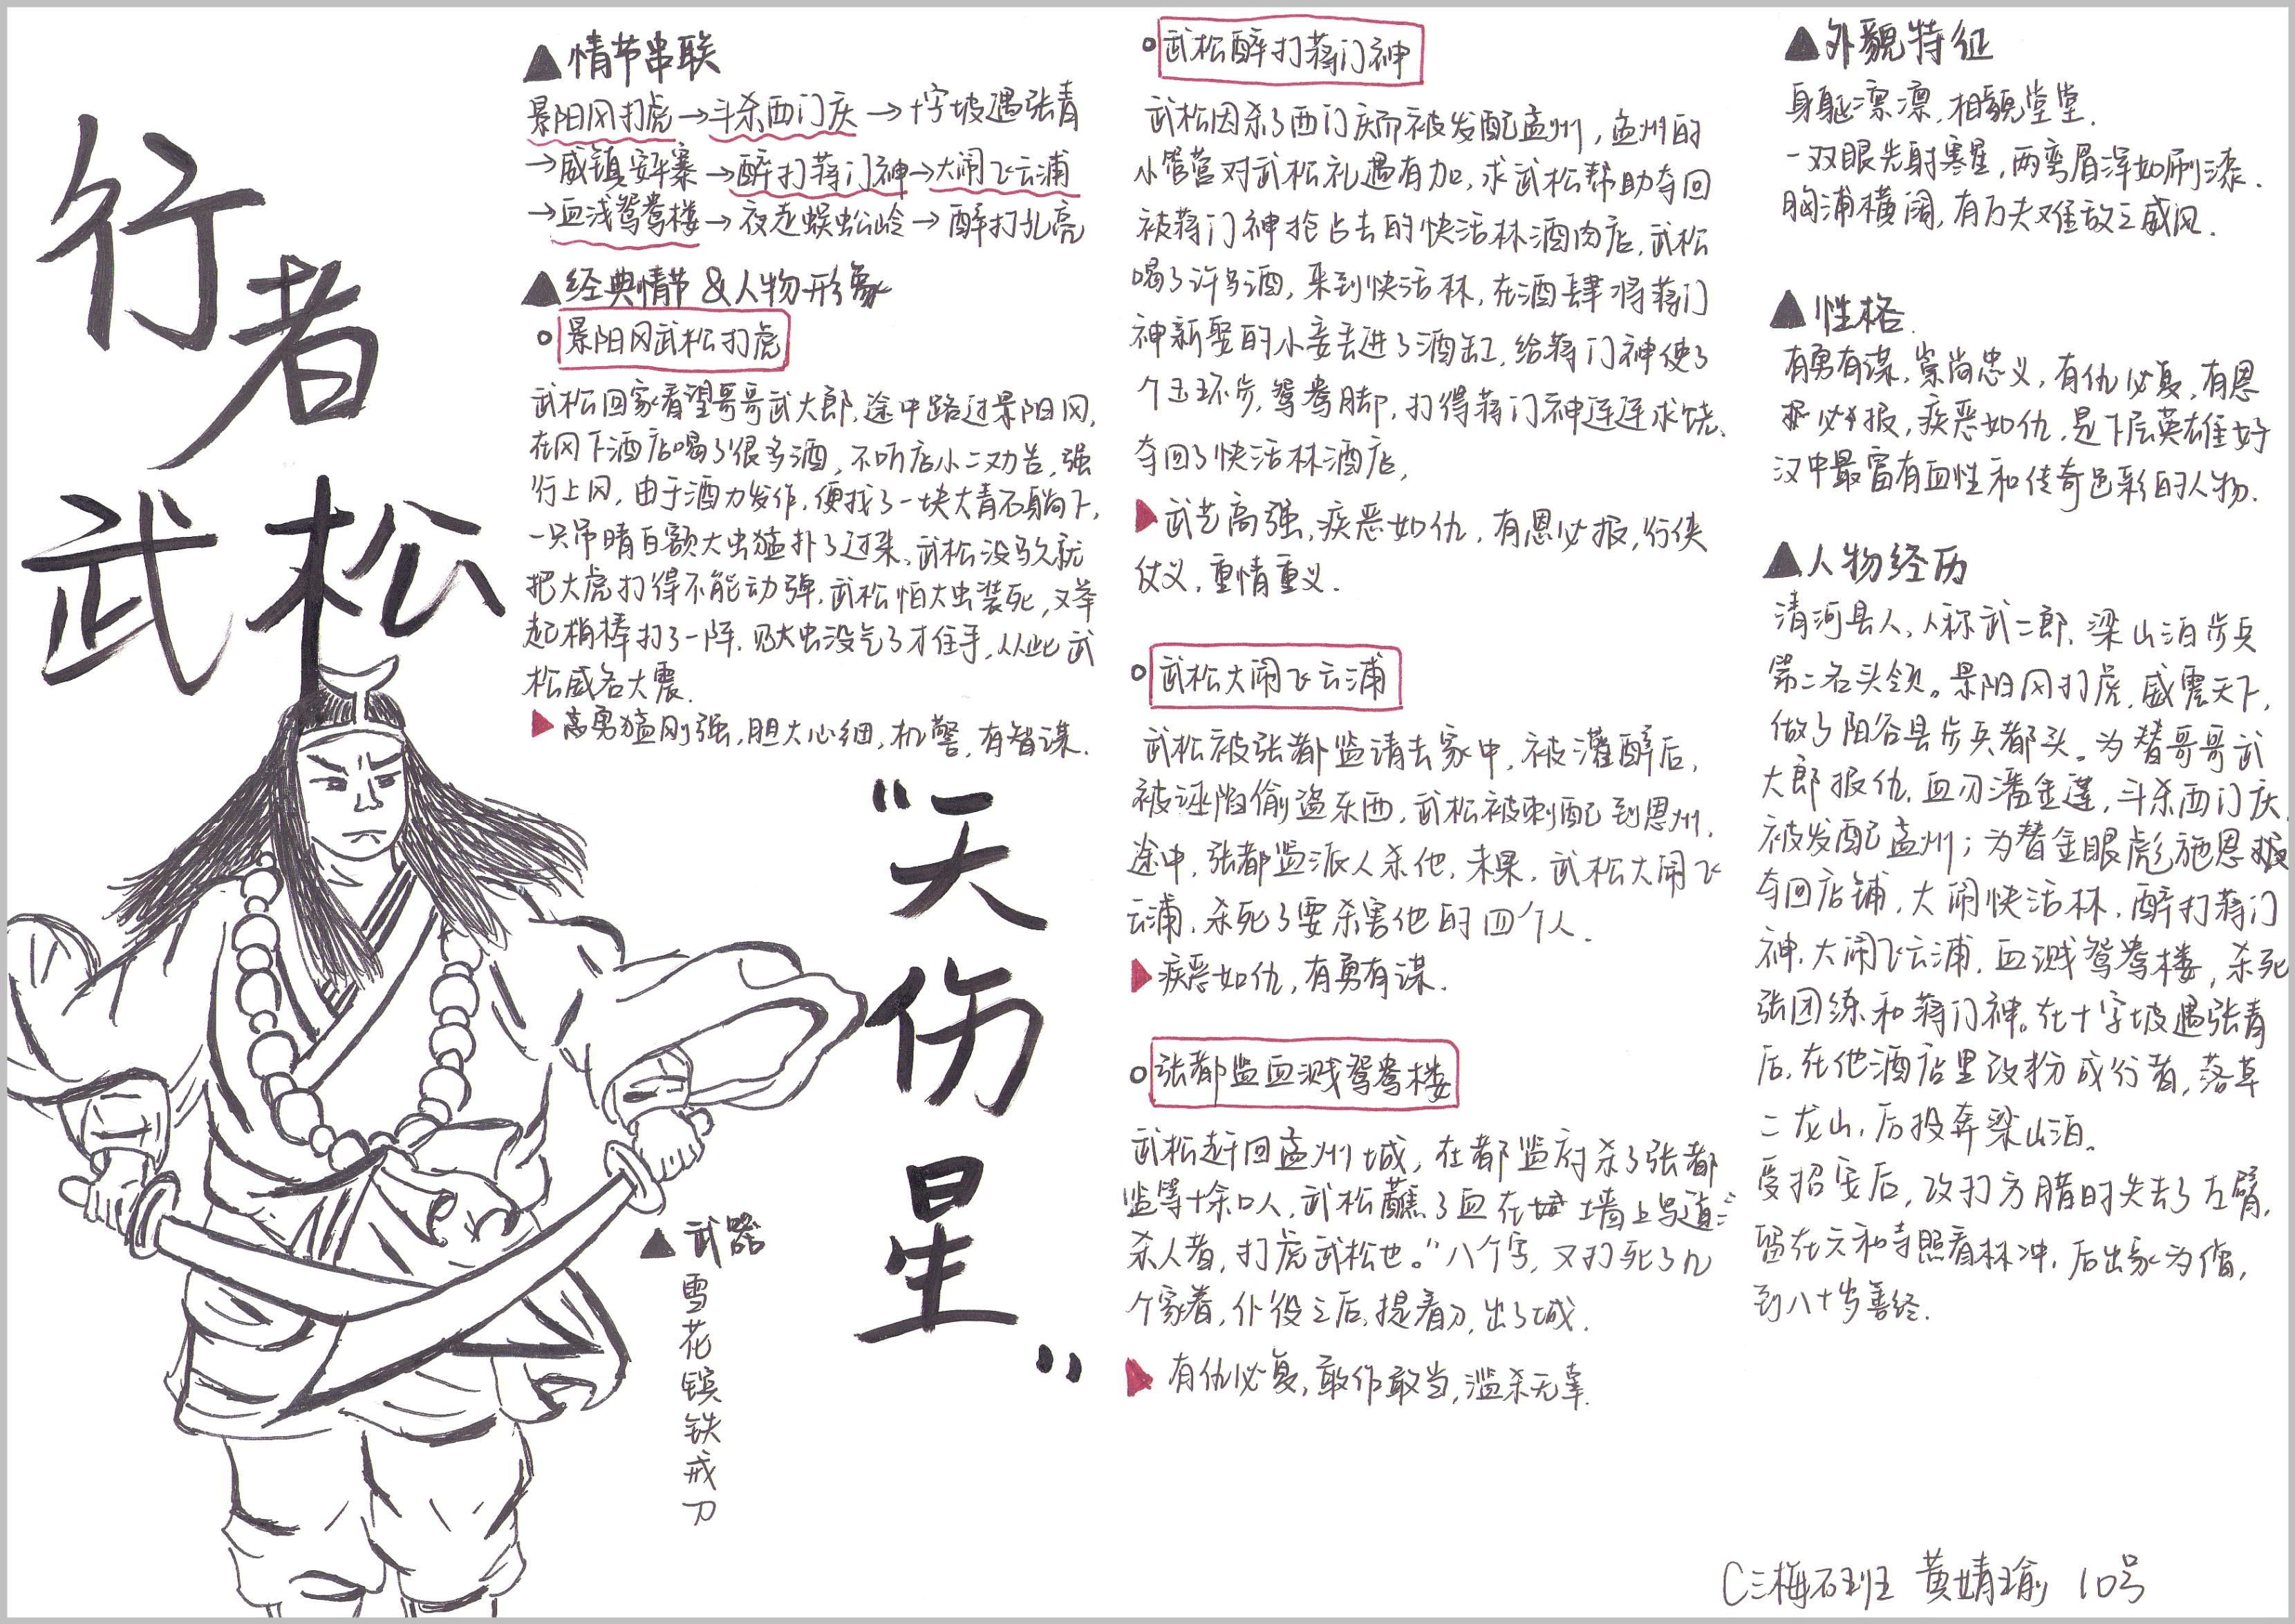 行者
武松
▲情节串联
景阳冈打虎→斗杀西门庆→十字坡遇张青
→威镇安平寨→醉打蒋门神→大闹飞云浦
→血溅鸳鸯楼→夜走蜈蚣岭→醉打孔亮
▲经典情节&人物形象
景阳冈武松打虎
武松回家看望哥哥武大郎,途中路过景阳冈,
在冈下酒店喝了很多酒,不听店小二劝告,强
行上冈,由于酒力发作,便找了一块大青石躺下,
一只吊睛白额大虫猛扑了过来、武松没多久就
把大虎打得不能动弹,武松怕大虫装死,又举
起梢棒打了一阵,见大虫没气了才住手,从此武
松威名大震.
▶高勇猛刚强,胆大心细,机警,有智谋.
“天伤星”
▲武器
雪花镔铁戒刀
武松醉打蒋门神
武松因杀了西门庆而被发配孟州,孟州的
小管营对武松礼遇有加,求武松帮助夺回
被蒋门神抢占去的快活林酒肉店,武松
喝了许多酒,来到快活林,在酒肆将蒋门
神新娶的小妾丢进了酒缸,给蒋门神使了
个玉环步,鸳鸯脚,打得蒋门神连连求饶、
夺回了快活林酒店,
▶武艺高强,疾恶如仇,有恩必报,行侠
仗义,重情重义.
武松大闹飞云浦
武松被张都监请去家中,被灌醉后,
被诬陷偷盗东西,武松被刺配到恩州,
途中,张都监派人杀他,未果,武松大闹飞
云浦,杀死了要杀害他的四个人.
▶疾恶如仇,有勇有谋.
张都监血溅鸳鸯楼
武松赶回孟州城,在都监府杀了张都
监等十余口人,武松蘸了血在墙上写道:“
杀人者,打虎武松也。”八个字,又打死了几
个家眷,仆役之后,提着刀,出了城.
▶有仇必复,敢作敢当,滥杀无辜.
▲外貌特征
身躯凛凛,相貌堂堂.
一双眼光射寒星,两弯眉浑如刷漆.
胸浦横阔,有万夫难敌之威风.
▲性格.
有勇有谋,崇尚忠义,有仇必复,有恩
必报,疾恶如仇,是下层英雄好
汉中最富有血性和传奇色彩的人物.
▲人物经历
清河县人,人称武二郎,梁山泊步兵
第二名头领。景阳冈打虎,威震天下,
做了阳谷县步兵都头。为替哥哥武
大郎报仇,血刃潘金莲,斗杀西门庆,
被发配孟州;为替金眼彪施恩报
夺回店铺,大闹快活林,醉打蒋门
神,大闹飞云浦,血溅鸳鸯楼,杀死
张团练和蒋门神。在十字坡遇张青
后,在他酒店里改扮成行者,落草
二龙山,后投奔梁山泊.
受招安后,攻打方腊时失去了左臂,
留在六和寺照看林冲,后出家为僧,
到八十岁善终.
C三梅石班 黄婧瑜 10号